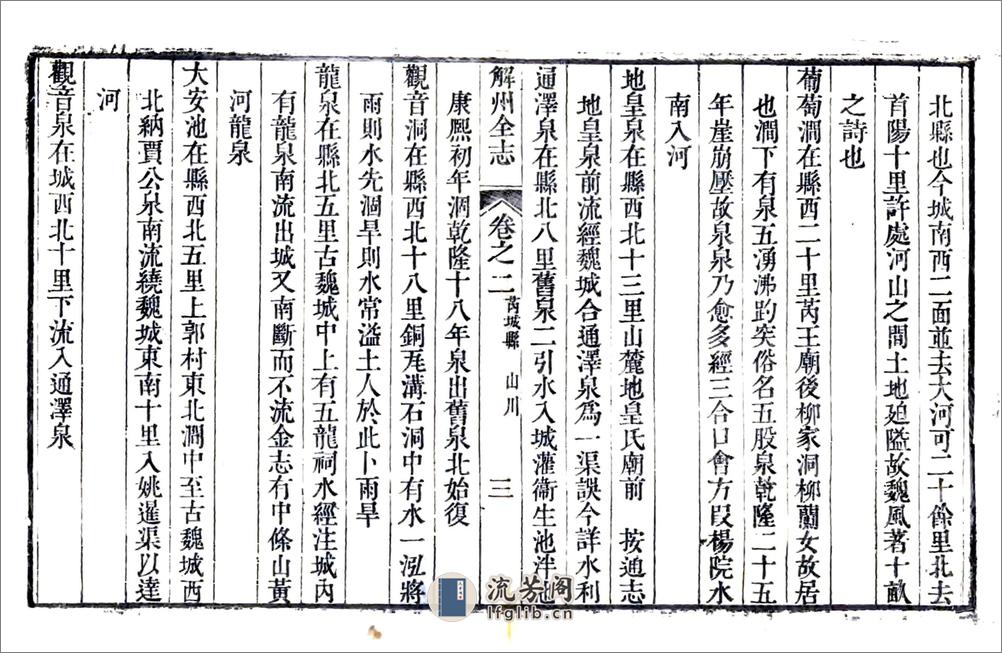 北縣也今城南西二面並去大河可二十餘里北去
首陽十里許處河山之間土地廹隘故魏風著十畝
之詩也
葡萄澗在縣西二十里芮王廟後柳家洞柳蘭女故居
也澗下有泉五湧沸趵突俗名五股泉乾隆二十五
年崖崩壓故泉泉乃愈多經三合口會方段楊院水
南入河
地皇泉在縣西北十三里山麓地皇氏廟前 按通志
地皇泉前流經魏城合通澤泉爲一渠誤今詳水利
通澤泉在縣北八里舊泉二引水入城灌衞生池泮池
康熙初年涸乾隆十八年泉出舊泉北始復
解州全志 卷之二 芮城縣 山川 三
觀音洞在縣西北十八里銅尾溝石洞中有水一泓將
雨則水先涸旱則水常溢土人於此卜雨旱
龍泉在縣北五里古魏城中上有五龍祠水經注城內
有龍泉南流出城又南斷而不流金志有中條山黃
河龍泉
大安池在縣西北五里上郭村東北澗中至古魏城西
北納賈公泉南流繞魏城東南十里入姚暹渠以達
河
觀音泉在城西北十里下流入通澤泉
流芳阁
lfglib.cn